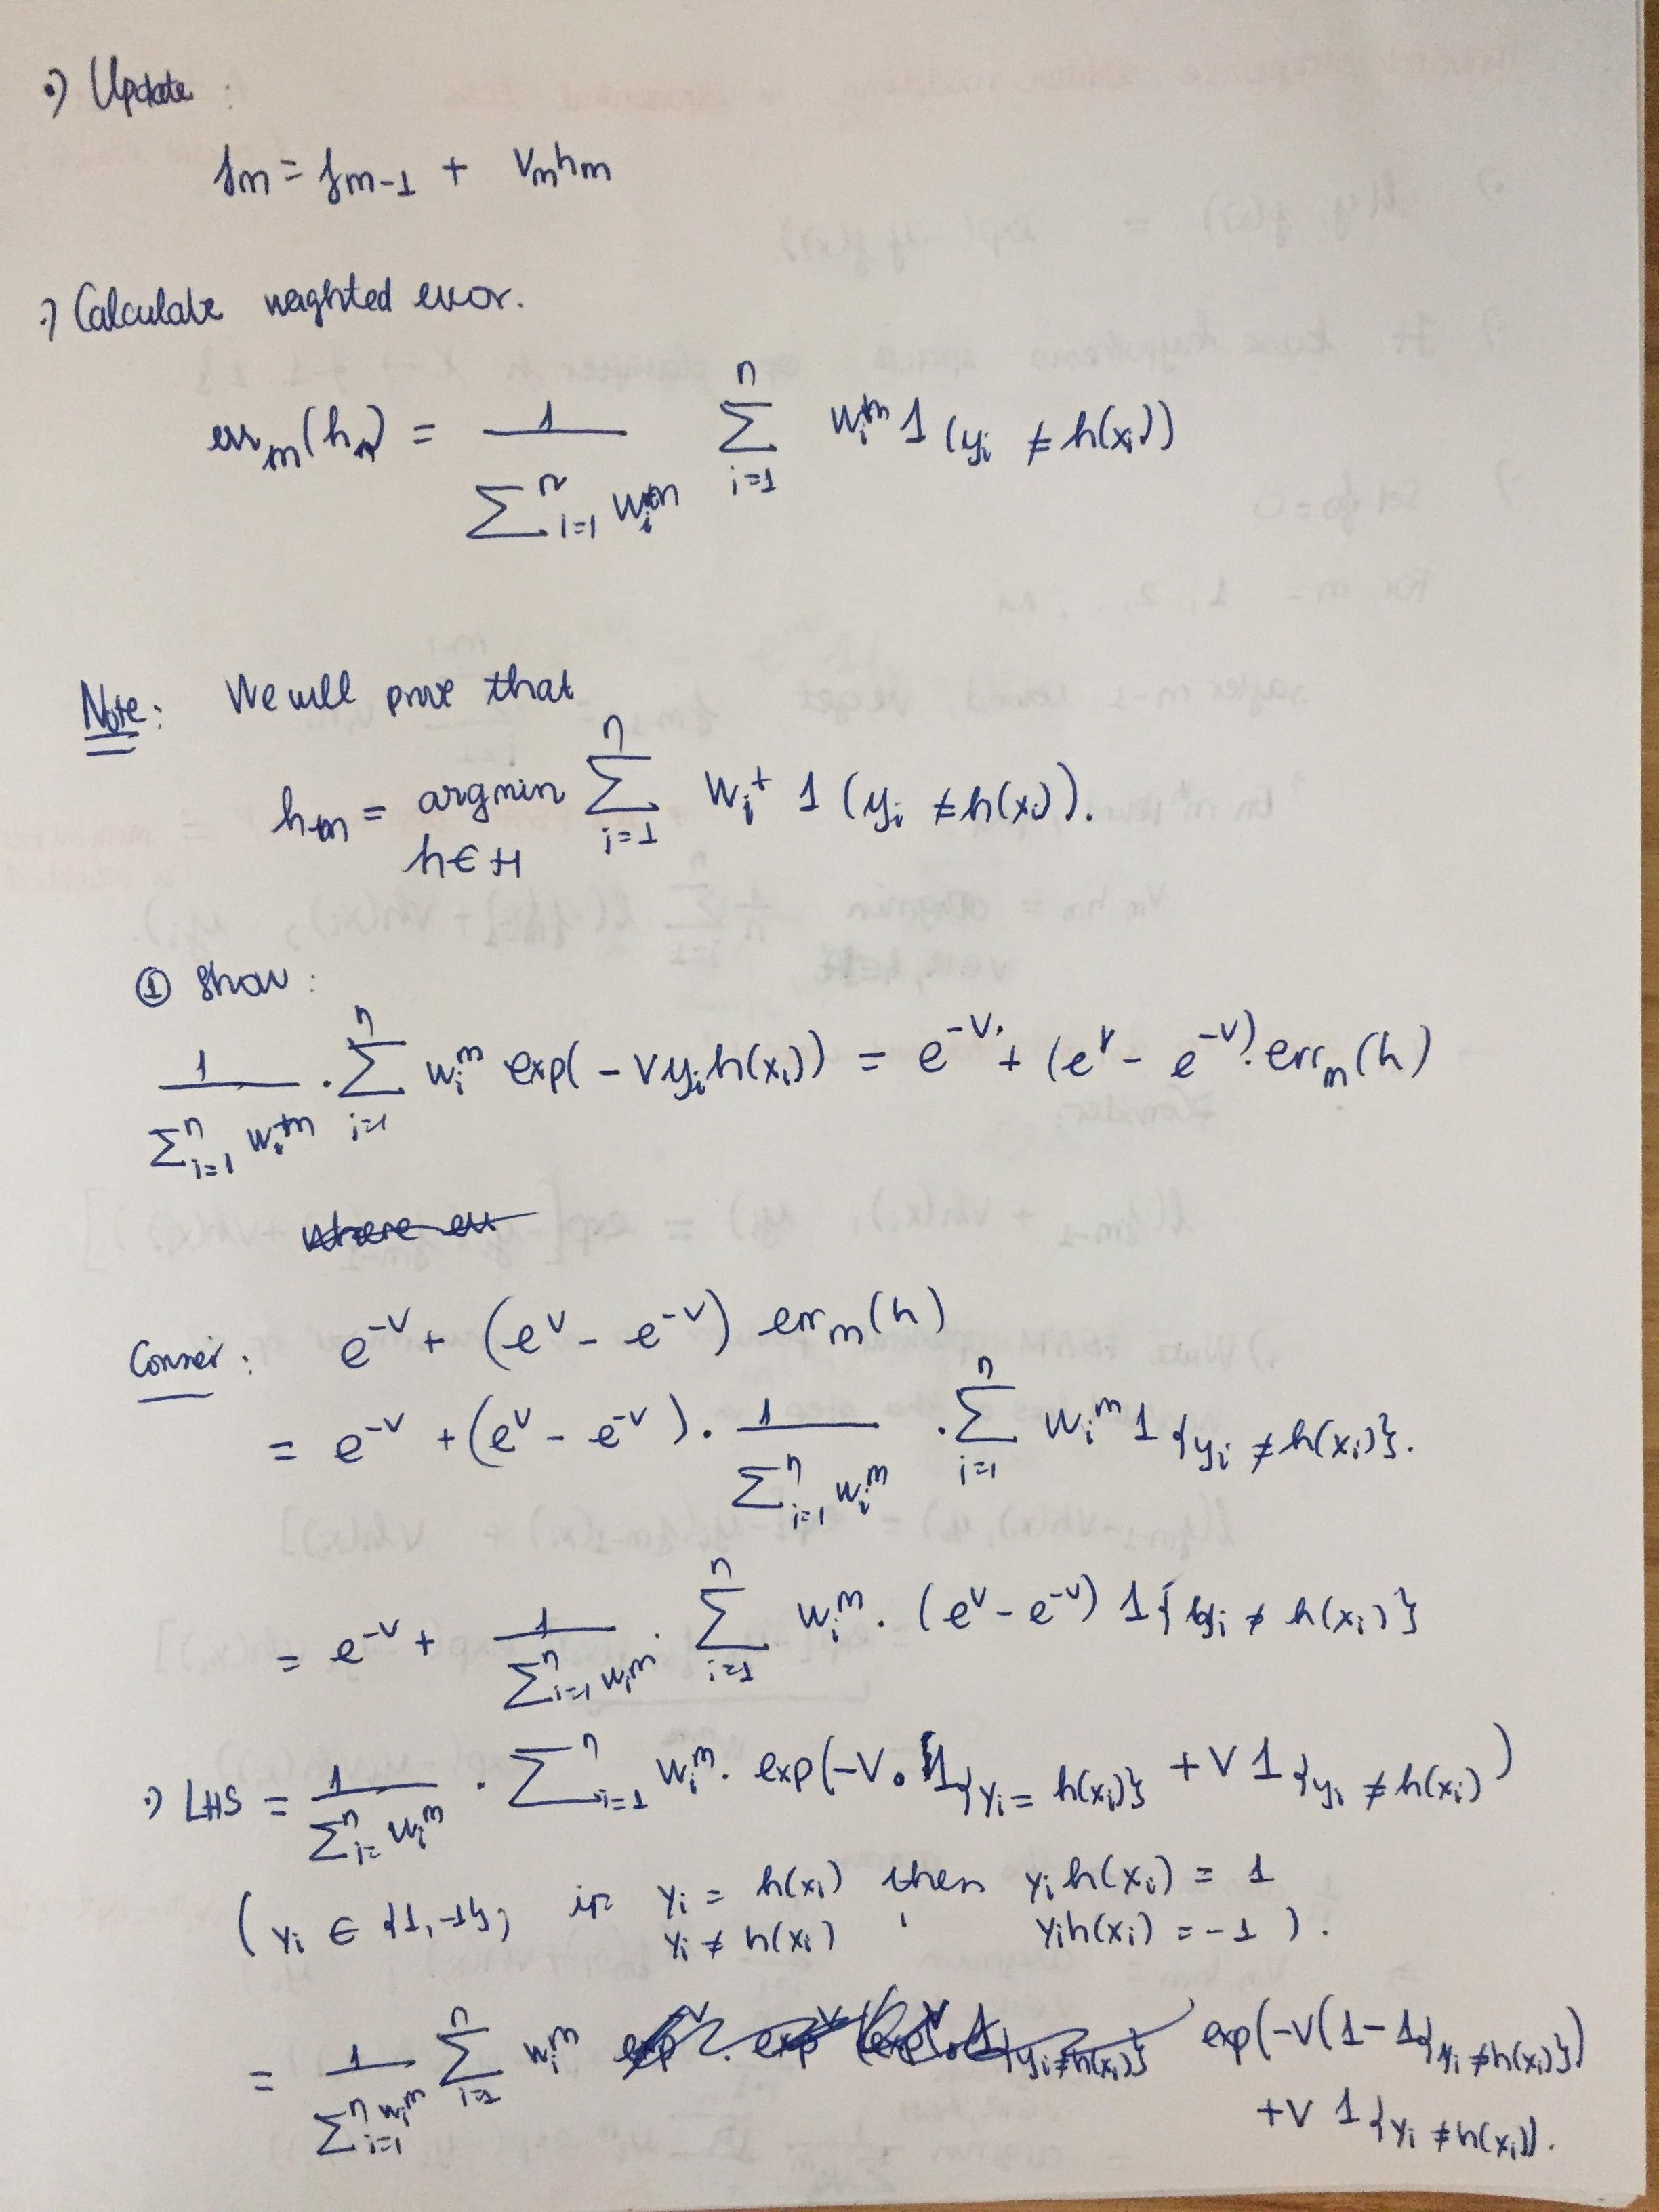 ·) Update :
fm = fm-1 + Vm hm
·) Calculate weighted error.
err_m(h_m) = 1 / (∑_{i=1}^n w_i^m) ∑_{i=1}^n w_i^m 1(y_i ≠ h(x_i))
Note: We will prove that
h_m = argmin_{h∈H} ∑_{i=1}^n w_i^t 1(y_i ≠ h(x_i)).
① Show :
1 / (∑_{i=1}^n w_i^m) · ∑_{i=1}^n w_i^m exp(-v y_i h(x_i)) = e^{-v} + (e^v - e^{-v}) · err_m(h)
where err
e^{-v} + (e^v - e^{-v}) err_m(h)
= e^{-v} + (e^v - e^{-v}) · 1 / (∑_{i=1}^n w_i^m) · ∑_{i=1}^n w_i^m 1{y_i ≠ h(x_i)}.
= e^{-v} + 1 / (∑_{i=1}^n w_i^m) · ∑_{i=1}^n w_i^m · (e^v - e^{-v}) 1{y_i ≠ h(x_i)}
·) LHS = 1 / (∑_{i=}^n w_i^m) · ∑_{i=1}^n w_i^m · exp(-v · 1{y_i = h(x_i)} + v 1{y_i ≠ h(x_i)})
(y_i ∈ {1,-1}, if y_i = h(x_i) then y_i h(x_i) = 1
y_i ≠ h(x_i) , y_i h(x_i) = -1 ).
= 1 / (∑_{i=1}^n w_i^m) ∑_{i=1}^n w_i^m exp(-v(1 - 1{y_i ≠ h(x_i)})
+ v 1{y_i ≠ h(x_i)}.